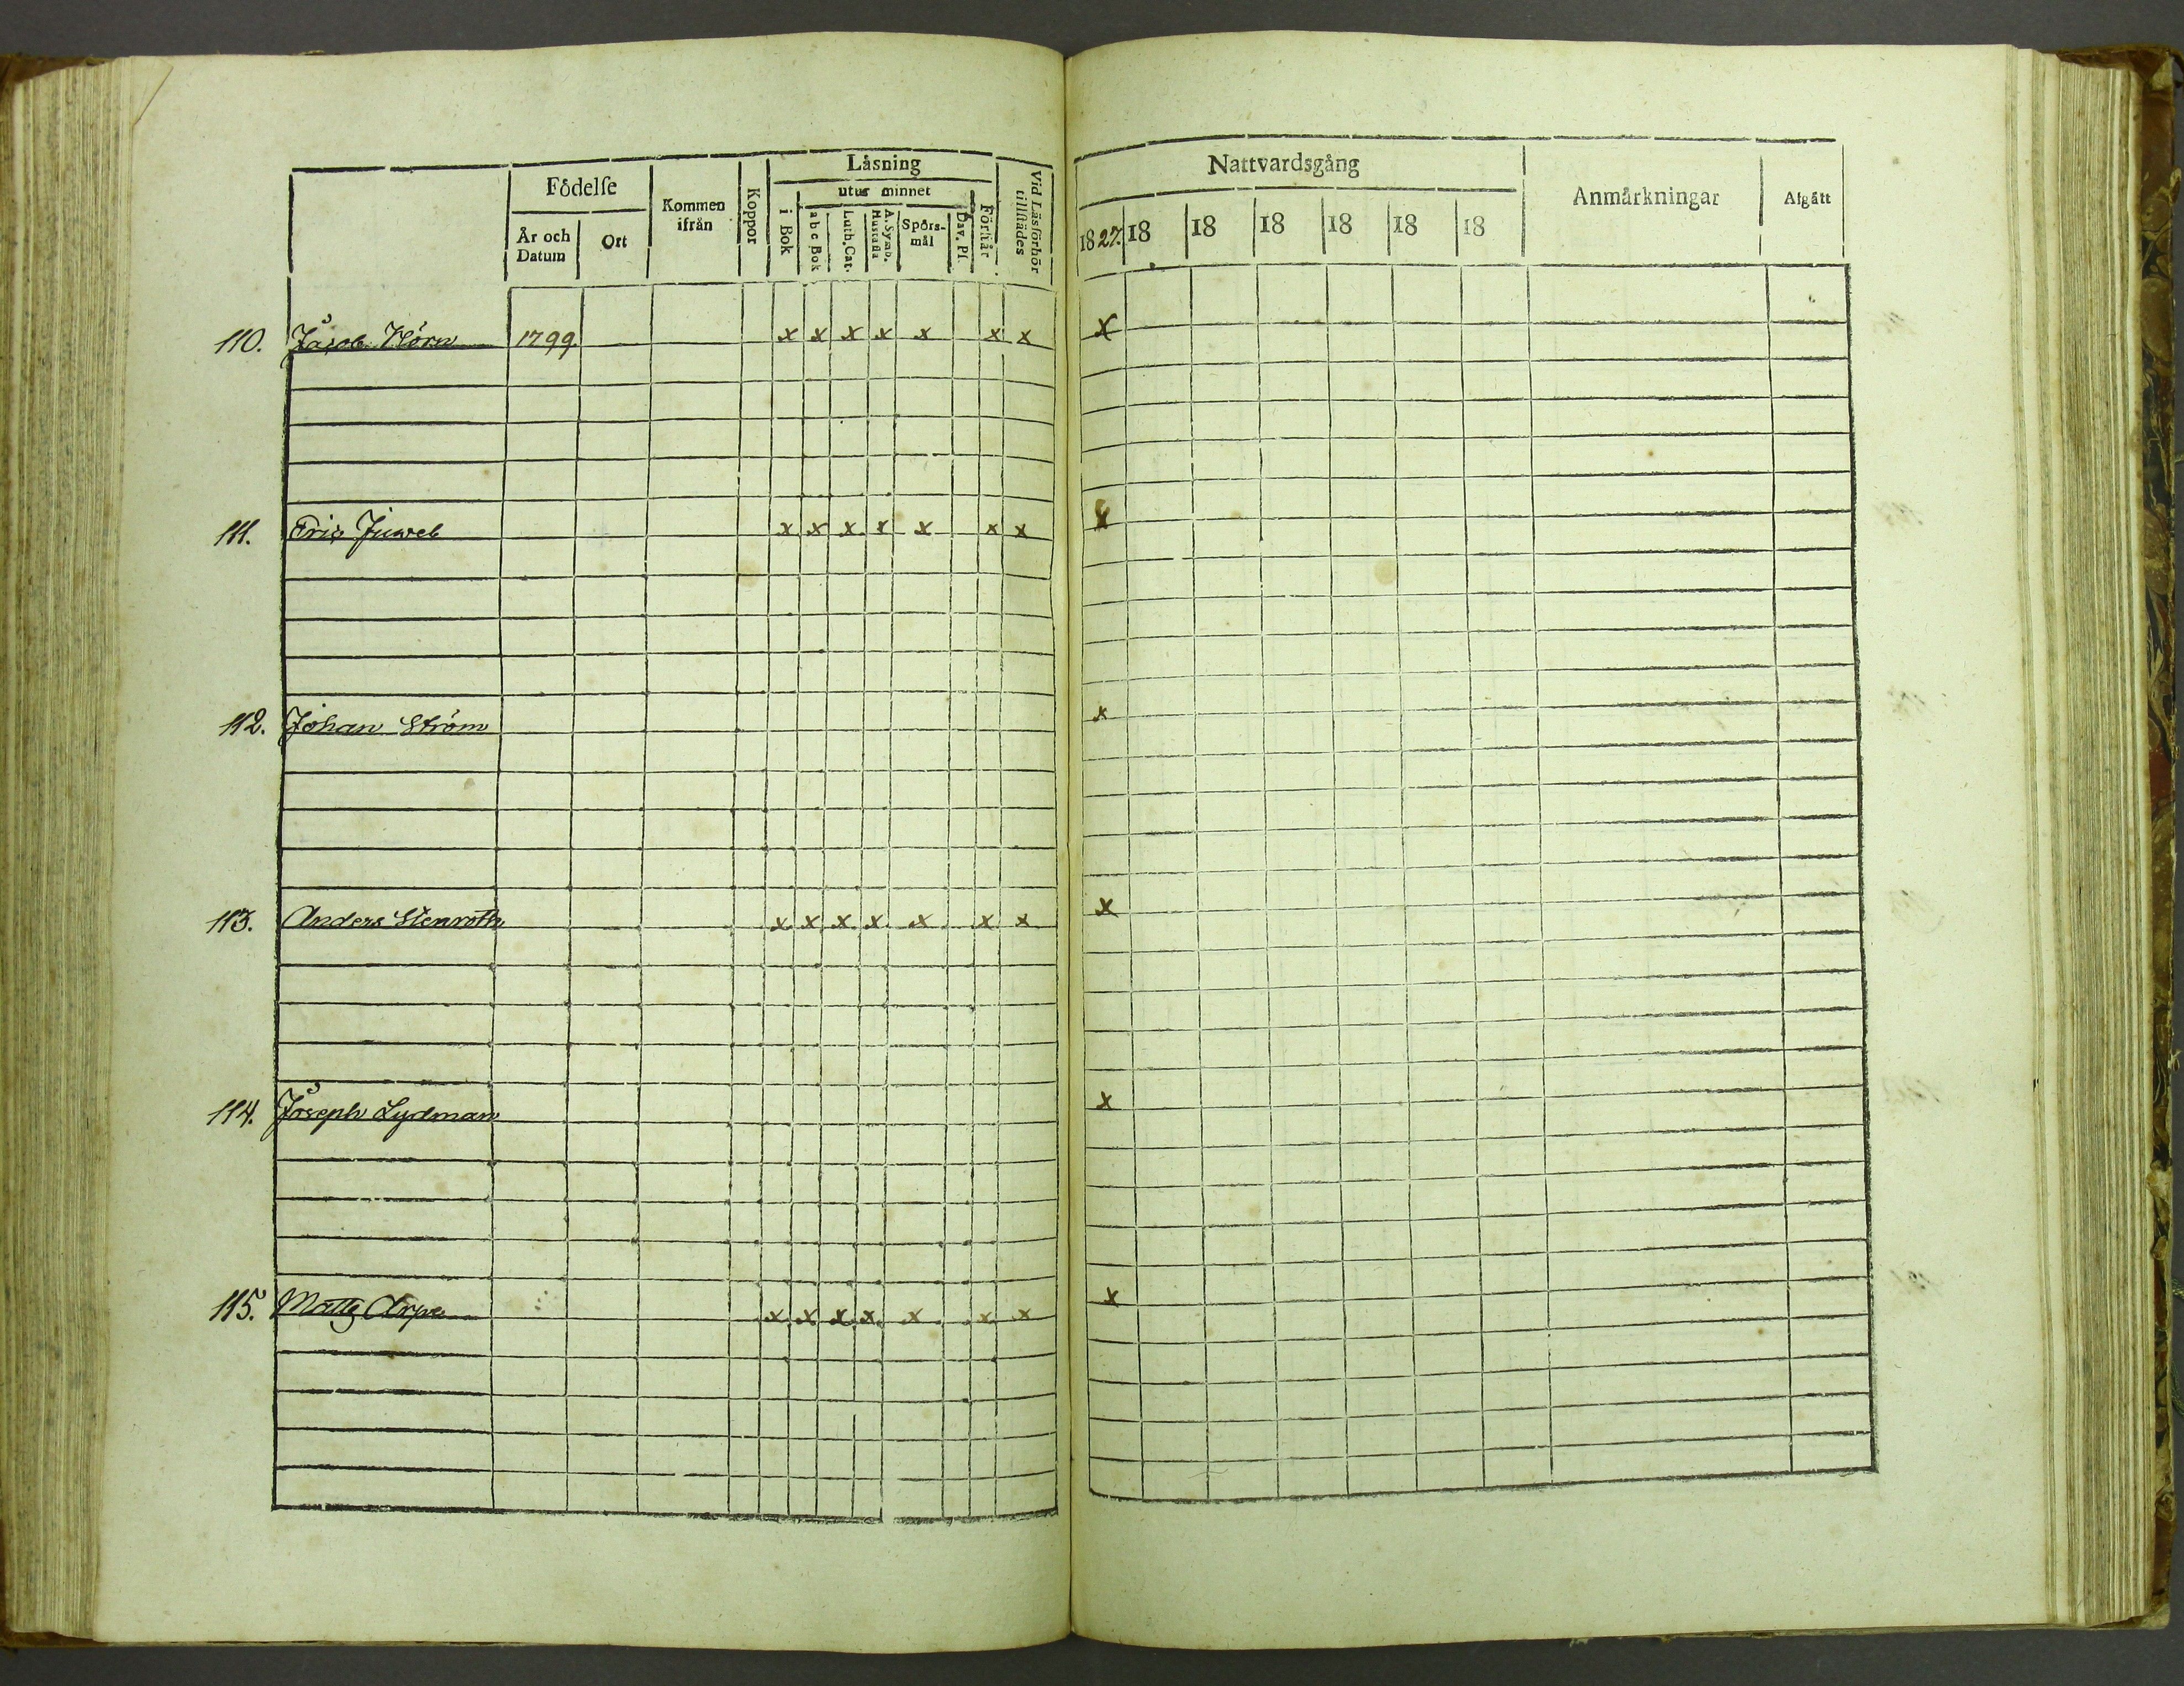 Födelſe
År och Datum
Ort
Kommen ifrån
Koppor
Låsning
i Bok
utur minnet
a b c Bok
Luth. Cat.
A. Symb. Hustafla
Spörs-mål
Dav. Pſ.
Förhår
Vid Läsförhör tillſtädes
Nattvardsgång
1827. 18 18 18 18 18 18
Anmärkningar
Afgått
110. Jacob Hörn 1799 x x x x x x x x
111. Eric Juwel x x x x x x x x
112. Johan Ström x
113. Anders Stenroth x x x x x x x x
114. Joseph Lydman x
115. Matts Arpe x x x x x x x x